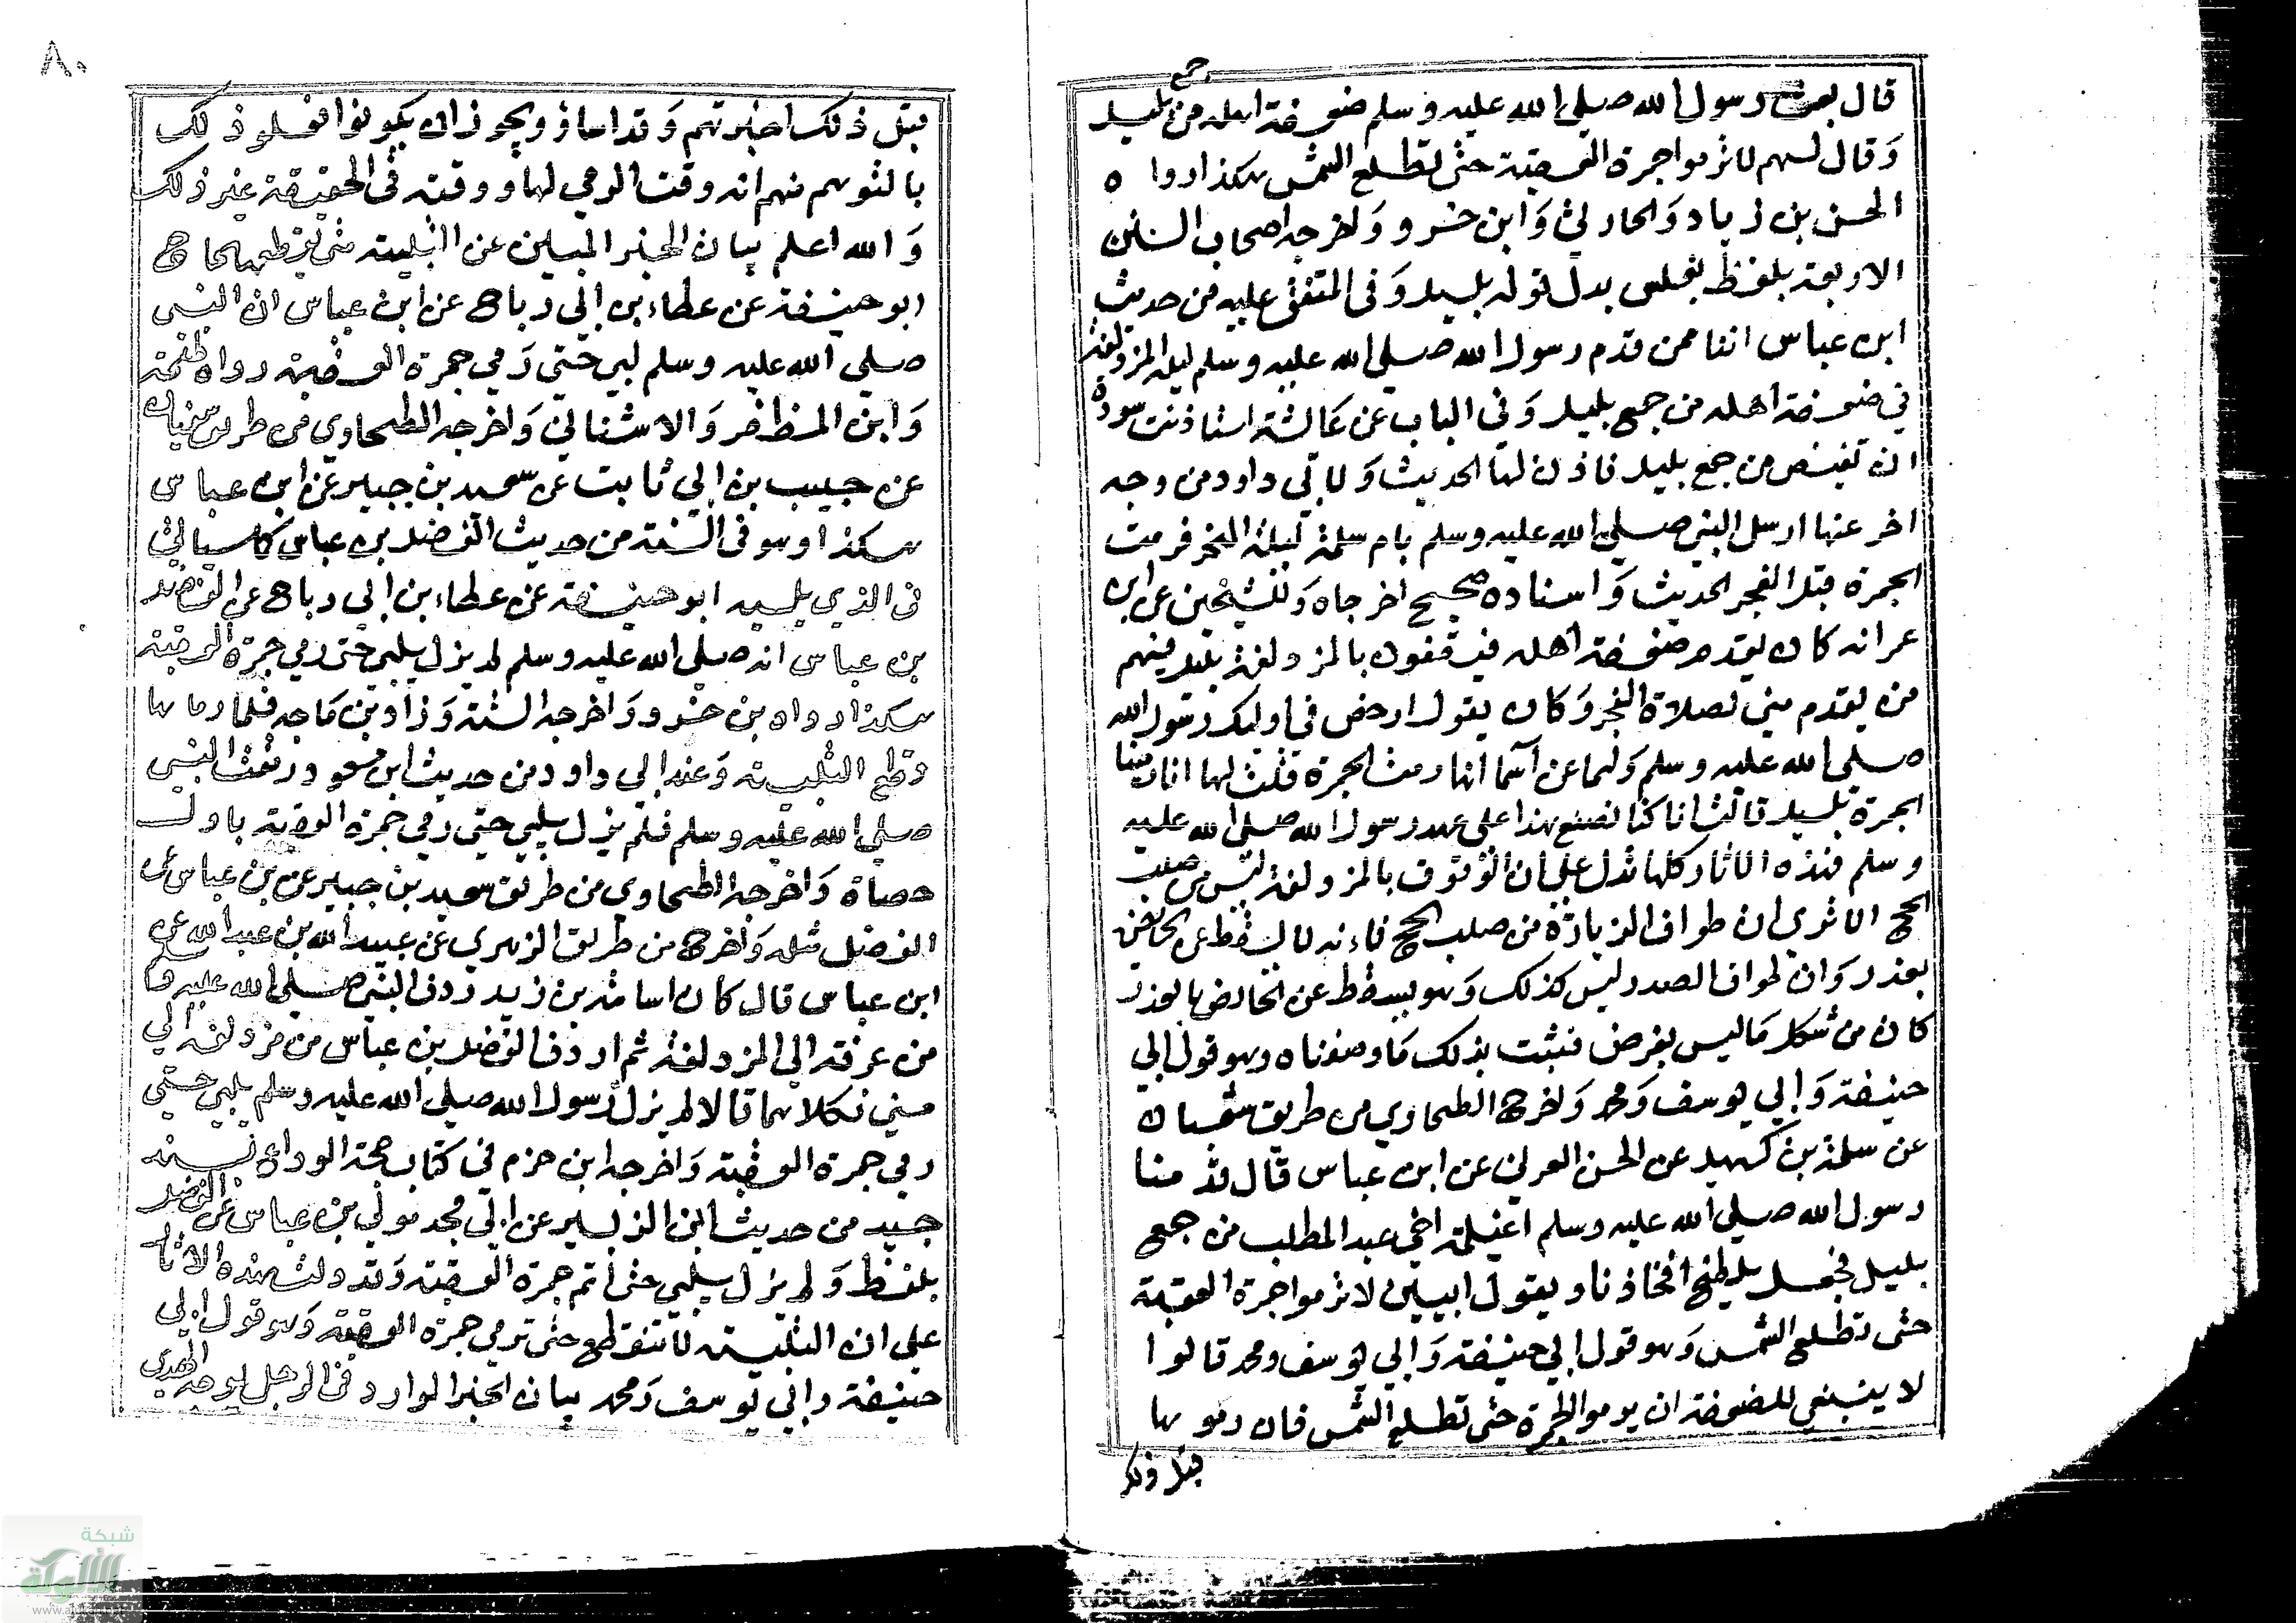 جمع
قال بعث رسول الله صلى الله عليه وسلم ضعفة اهله من بليل
وقال لهم لا ترموا جمرة العقبة حتى تطلع الشمس هكذا رواه
الحسن بن زياد والحارثي وابن خسرو واخرجه اصحاب السنن
الاربعة بلفظ بغلس بدل قوله بليل وفي المتفق عليه من حديث
ابن عباس انا ممن قدم رسول الله صلى الله عليه وسلم ليلة المزدلفة
في ضعفة اهله من جمع بليل وفي الباب عن عائشة استاذنت سودة
ان تفيض من جمع بليل فاذن لها الحديث ولابي داود من وجه
اخر عنها ارسل النبي صلى الله عليه وسلم بام سلمة ليلة النحر فرمت
الجمرة قبل الفجر الحديث واسناده صحيح اخرجاه وللشيخين عن ابن
عمر انه كان يقدم ضعفة اهله فيقفون بالمزدلفة بليل فمنهم
من يقدم منى لصلاة الفجر وكان يقول ارخص في اولئك رسول الله
صلى الله عليه وسلم ولهما عن اسما انها رمت الجمرة قلت لها انا رمينا
الجمرة بليل قالت انا كنا نصنع هذا على عهد رسول الله صلى الله عليه
وسلم فهذه الاثار كلها تدل على ان الوقوف بالمزدلفة ليس من صلب
الحج الا ترى ان طواف الزيارة من صلب الحج فانه لا يسقط عن الحائض
بعذر وان طواف الصدر ليس كذلك وهو يسقط عن الحائض بالعذر
كان من شكل ما ليس بفرض فثبت بذلك ما وصفناه وهو قول ابي
حنيفة وابي يوسف ومحمد واخرج الطحاوي من طريق سفيان
عن سلمة بن كهيل عن الحسن العرني عن ابن عباس قال قدمنا
رسول الله صلى الله عليه وسلم اغيلمة اخي عبد المطلب من جمع
بليل فجعل يلطح افخاذنا ويقول ابيني لا ترموا جمرة العقبة
حتى تطلع الشمس وهو قول ابي حنيفة وابي يوسف ومحمد قالوا
لا ينبغي للضعفة ان يرموا الجمرة حتى تطلع الشمس فان رموها
قبل ذلك
٨٠
قبل ذلك اجزتهم وقد اساؤ ويجوز ان يكونوا فعلو ذلك
بالتوهم منهم انه وقت الرمي لها ووقته في الحقيقة غير ذلك
والله اعلم بيان الخبر المبين عن التلبية متى يقطعها الحاج
ابو حنيفة عن عطاء بن ابي رباح عن ابن عباس ان النبي
صلى الله عليه وسلم لبى حتى رمي جمرة العقبة رواه طلحة
وابن المظفر والاشناني واخرجه الطحاوي من طريق سفيان
عن حبيب بن ابي ثابت عن سعيد بن جبير عن ابن عباس
هكذا وهو في الستة من حديث الفضل بن عباس كما سياتي
في الذي يليه ابو حنيفة عن عطاء بن ابي رباح عن الفضل
بن عباس انه صلى الله عليه وسلم لم يزل يلبي حتى رمي جمرة العقبة
هكذا رواه بن خسرو واخرجه الستة وزاد بن ماجه فلما رماها
قطع التلبية وعند ابي داود من حديث ابن مسعود رمقت النبي
صلى الله عليه وسلم فلم يزل يلبي حتى رمي جمرة العقبة باول
حصاة واخرجه الطحاوي من طريق سعيد بن جبير عن بن عباس عن
الفضل مثله واخرج من طريق الزهري عن عبيد الله بن عبد الله عن
ابن عباس قال كان اسامة بن زيد ردف النبي صلى الله عليه وسلم
من عرفة الى المزدلفة ثم اردف الفضل بن عباس من مزدلفة الى
منى فكلاهما قالا لم يزل رسول الله صلى الله عليه وسلم يلبي حتى
رمي جمرة العقبة واخرجه ابن حزم في كتاب حجة الوداع بسند
جيد من حديث ابن الزبير عن ابي محمد مولى بن عباس عن الفضل
بلفظ ولم يزل يلبي حتى اتم جمرة العقبة وقد دلت هذه الاثار
على ان التلبية لا تنقطع حتى ترمي جمرة العقبة وهو قول ابي
حنيفة وابي يوسف ومحمد بيان الخبر الوارد في الرجل يوجه الهدي
شبكة
الألوكة